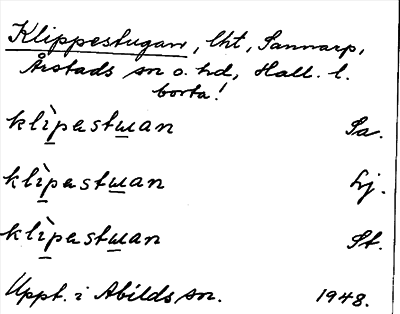 Klippestugan, lht, Sannarp,
Årstads sn o. hd, Hall. l.
borta!
klìpastɯan Sa.
klìpastɯan Lj.
klìpastɯan St.
Uppt. i Abilds sn. 1948.